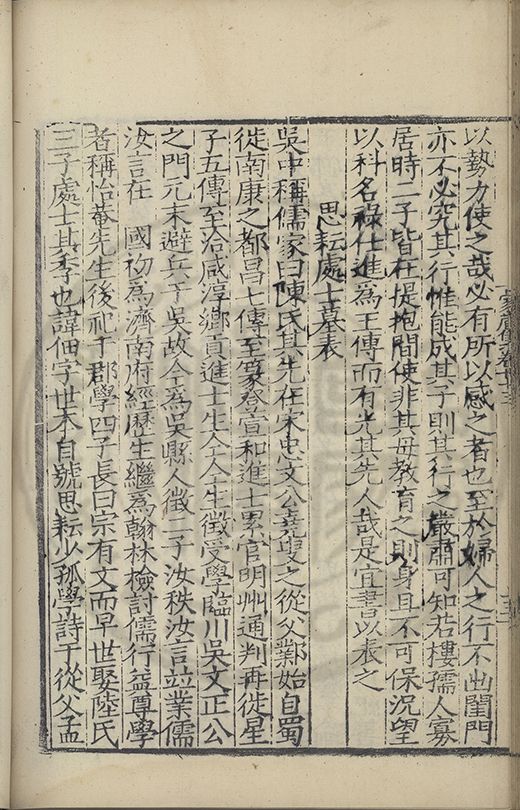 以勢力使之哉必有所以感之者也至於婦人之行不出閨門
亦不必究其行惟能成其子則其行之嚴肅可知若樓孺人寡
居時二子皆在提抱間使非其母教育之則身且不可保況望
以科名祿仕進爲王傳而有光其先人哉是宜書以表之
思耘處士墓表
吳中稱儒家曰陳氏其先在宋忠文公堯叟之從父鄴始自蜀
徙南康之都昌七傳至篆登宣和進士累官明州通判再徙星
子五傳至洽咸淳鄉貢進士生仝仝生徵受學臨川吳文正公
之門元末避兵于吳故今爲吳縣人徵二子汝秩汝言竝業儒
汝言在 國初爲濟南府經歷生繼爲翰林檢討儒行益尊學
者稱怡菴先生後祀于郡學四子長曰宗有文而早世娶陸氏
三子處士其季也諱佃字世本自號思耘少孤學詩于從父孟